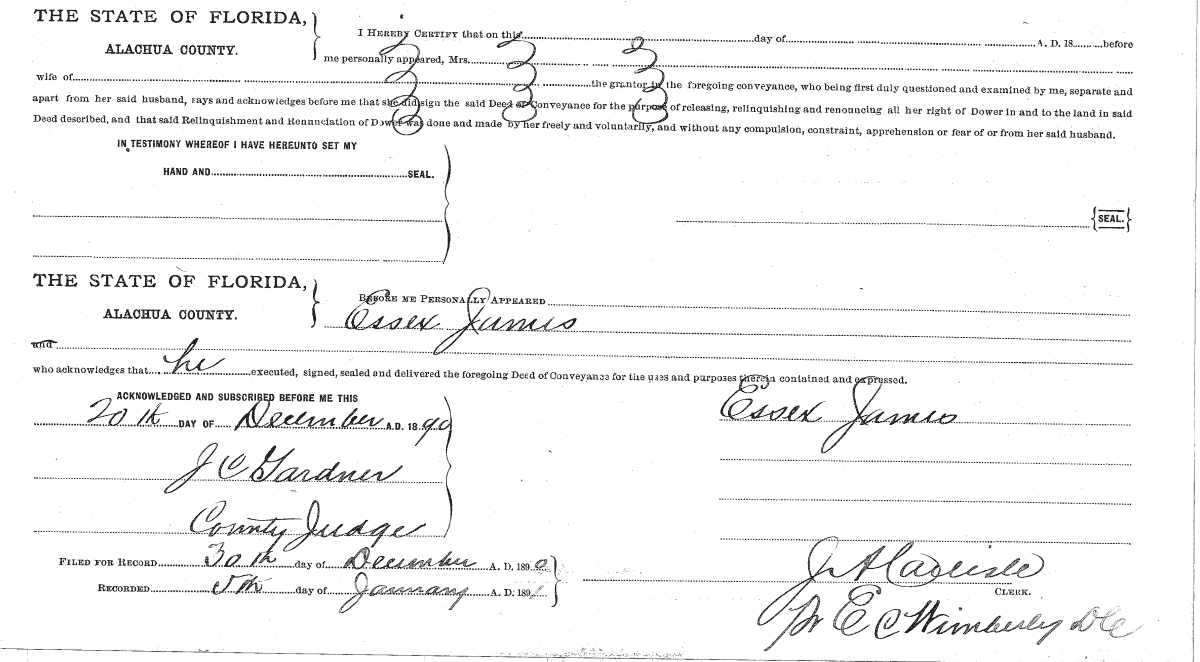 THE STATE OF FLORIDA,
ALACHUA COUNTY.
I HEREBY CERTIFY that on this day of A. D. 18 before
me personally appeared, Mrs.
wife of the grantor in the foregoing conveyance, who being first duly questioned and examined by me, separate and
apart from her said husband, says and acknowledges before me that she did sign the said Deed of Conveyance for the purpose of releasing, relinquishing and renouncing all her right of Dower in and to the land in said
Deed described, and that said Relinquishment and Renunciation of Dower was done and made by her freely and voluntarily, and without any compulsion, constraint, apprehension or fear of or from her said husband.
IN TESTIMONY WHEREOF I HAVE HEREUNTO SET MY
HAND AND SEAL.
{SEAL.}
THE STATE OF FLORIDA,
ALACHUA COUNTY.
BEFORE ME PERSONALLY APPEARED
Essex James
and
who acknowledges that he executed, signed, sealed and delivered the foregoing Deed of Conveyance for the uses and purposes therein contained and expressed.
ACKNOWLEDGED AND SUBSCRIBED BEFORE ME THIS
20th DAY OF December A.D. 1890
Essex James
J C Gardner
County Judge
FILED FOR RECORD 30th day of December A. D. 1890
RECORDED 5th day of January A. D. 1891
J A Carlisle
CLERK.
Pr E C Wimberly DC